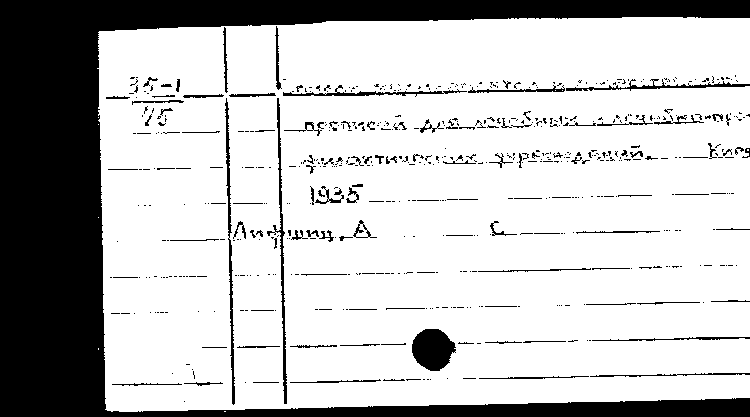 35-1
75
Список медикаментов и лекарственных
прописей для лечебных и лечебно-про-
филактических учреждений. Киев
1935
Лифшиц, А С